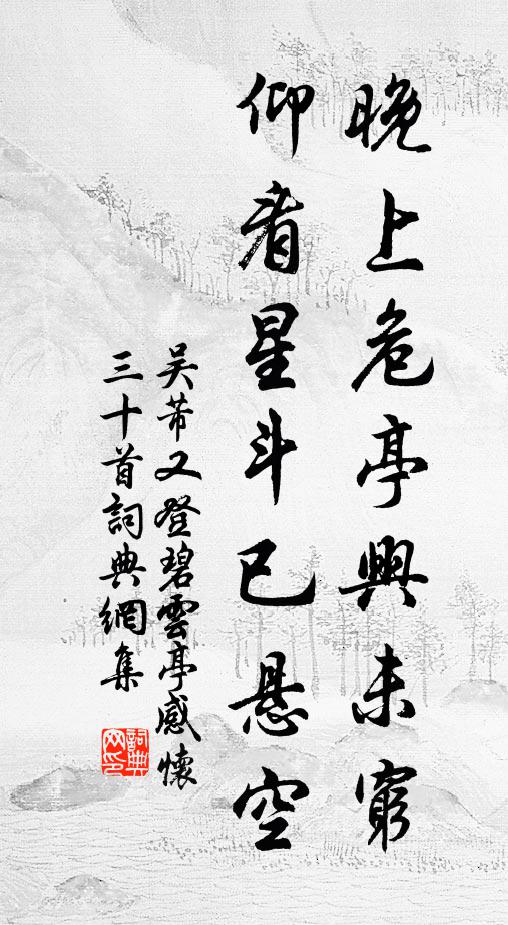 晚上危亭興未窮
仰看星斗已悬空
吴芾又登碧雲亭感懷
三十首詞典網集
詞典
网印